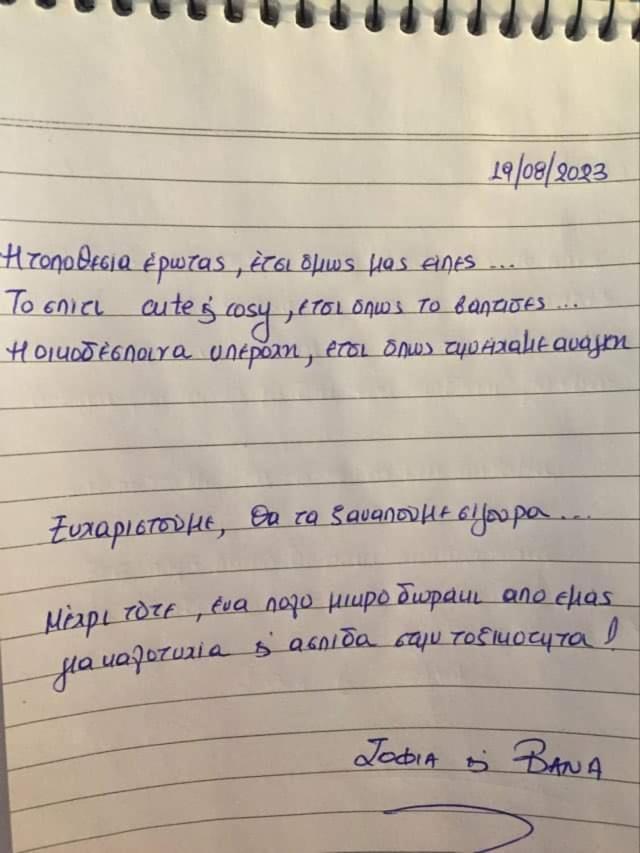 19/08/2023
Η τοποθεσια έρωτας, έτσι όμως μας ειπες...
Το σπιτι cute & cosy, ετσι οπως το βαπτισες...
Η οικοδέσποινα υπέροχη, έτσι όπως την είχαμε αναγκη
Ευχαριστούμε, θα τα ξαναπούμε σίγουρα...
Μέχρι τότε, ένα πολυ μικρο δωρακι απο εμας
για καλοτυχια & ασπιδα στην τοξικοτητα!
Σοφια & Βανα